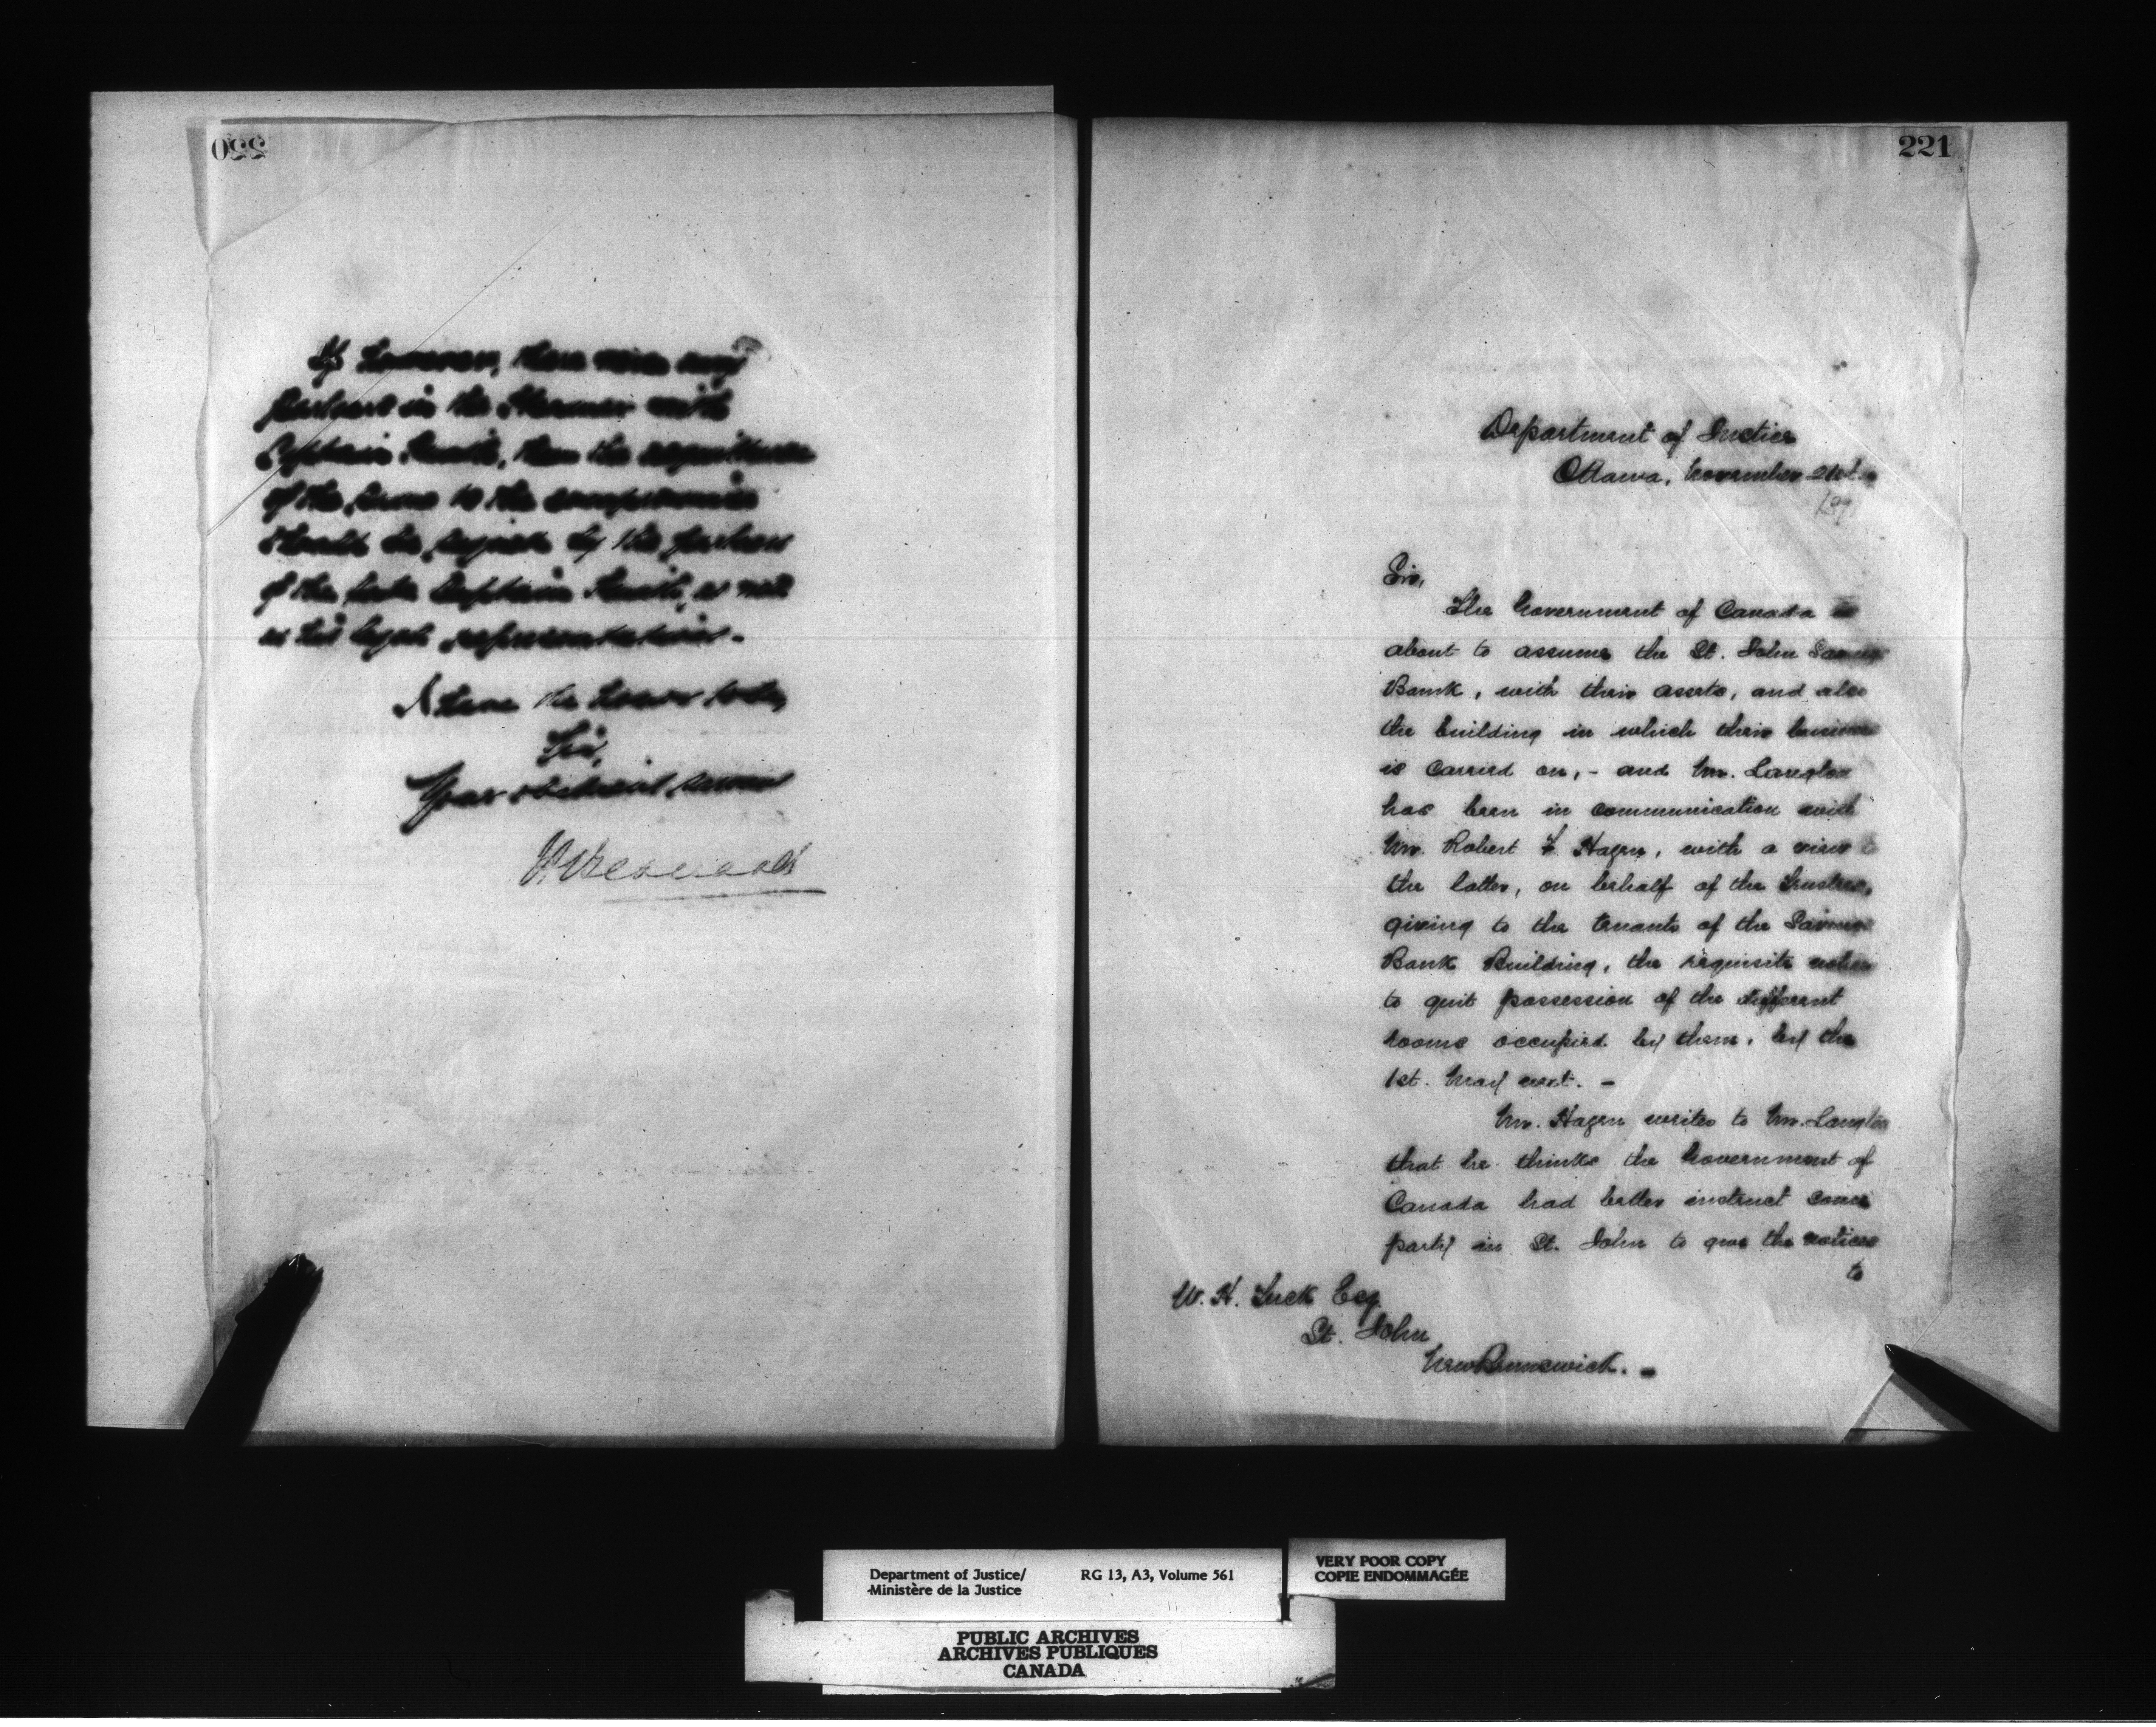 220
If however, there were any
partners in the Steamer with
Captain Smith, then the acquittance
of the same to the compromise
should be signed by the partners
of the late Captain Smith, as well
as his legal representatives. -
I have the honor to be,
Sir,
Your obedient servant
221
Department of Justice
Ottawa, November 21st.
Sir,
The Government of Canada is
about to assume the St. John Savings
Bank, with their assets, and also
the building in which their business
is carried on, - and Mr. Langton
has been in communication with
Mr. Robert F. Hazen, with a view to
the latter, on behalf of the Trustees,
giving to the tenants of the Savings
Bank Building, the requisite notice
to quit possession of the different
rooms occupied by them, by the
1st. May next. -
Mr. Hazen writes to Mr. Langton
that he thinks the Government of
Canada had better instruct some
party in St. John to give the notices
to
W. H. Tuck Esq.
St. John
New Brunswick. -
Department of Justice/
Ministère de la Justice
RG 13, A3, Volume 561
VERY POOR COPY
COPIE ENDOMMAGÉE
PUBLIC ARCHIVES
ARCHIVES PUBLIQUES
CANADA